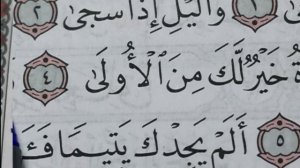 ١ وَٱلَّيۡلِ إِذَا سَجَىٰ ٢
خَيۡرٞ لَّكَ مِنَ ٱلۡأُولَىٰ ٤
٥ أَلَمۡ يَجِدۡكَ يَتِيمٗا فَـَٔ